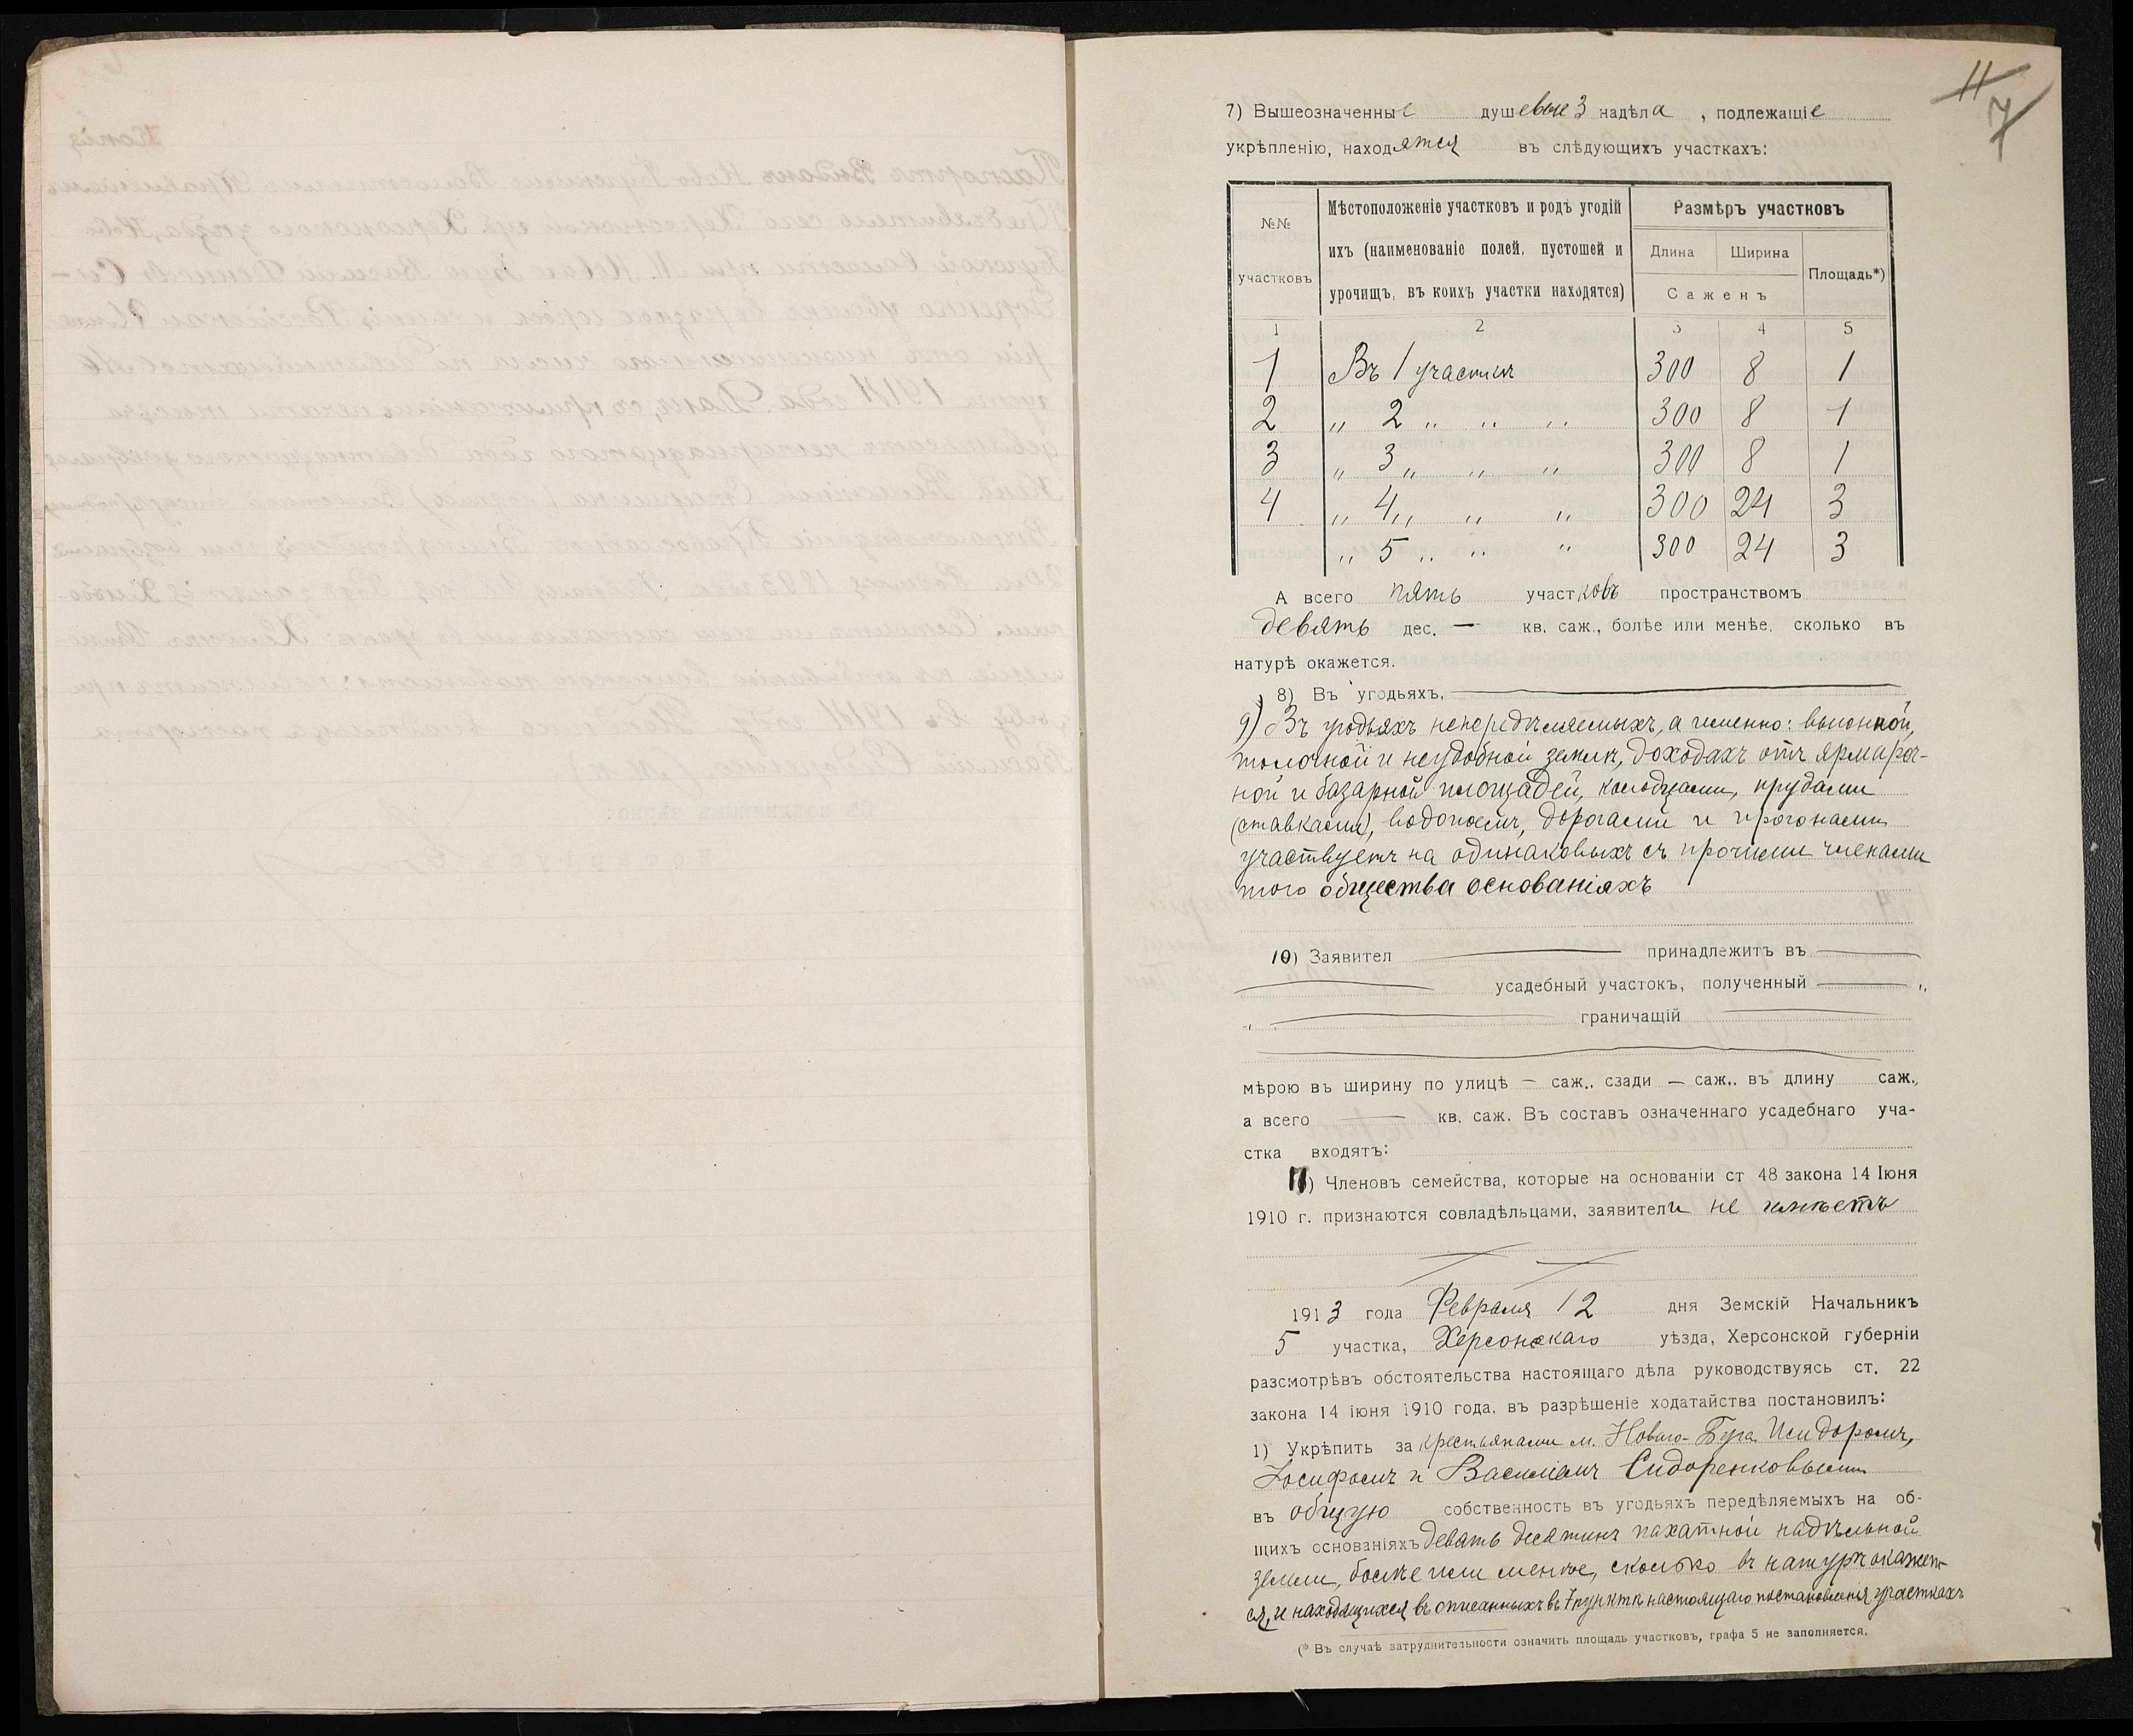 11
7
7) Вышеозначенные душевые 3 надѣла, подлежащіе
укрѣпленію, находятся въ слѣдующихъ участкахъ:
№№ участковъ
Мѣстоположеніе участковъ и родъ угодій
ихъ (наименованіе полей, пустошей и
урочищъ, въ коихъ участки находятся)
Размѣръ участковъ
Длина Ширина Площадь*)
Сажень
1 2 3 4 5
1 Въ 1 участкѣ 300 8 1
2 „ 2 „ „ „ 300 8 1
3 „ 3 „ „ „ 300 8 1
4 „ 4 „ „ „ 300 24 3
„ 5 „ „ „ 300 24 3
А всего пять участковъ пространствомъ
девять дес. — кв. саж., болѣе или менѣе, сколько въ
натурѣ окажется.
8) Въ угодьяхъ,
9) Въ угодьяхъ непередѣляемыхъ, а именно: выгонной,
толочной и неудобной земли, доходахъ отъ ярмароч-
ной и базарной площадей, колодцами, прудами
(ставками), водопоемъ, дорогами и прогонами
участвуетъ на одинаковыхъ съ прочими членами
того общества основаніяхъ
10) Заявител — принадлежитъ въ —
— усадебный участокъ, полученный — „
„ — граничащій —
мѣрою въ ширину по улицѣ — саж., сзади — саж., въ длину саж.,
а всего — кв. саж. Въ составъ означеннаго усадебнаго уча-
стка входятъ:
11) Членовъ семейства, которые на основаніи ст 48 закона 14 Іюня
1910 г. признаются совладѣльцами, заявители не имѣетъ
1913 года Февраля 12 дня Земскій Начальникъ
5 участка, Херсонскаго уѣзда, Херсонской губерніи
разсмотрѣвъ обстоятельства настоящаго дѣла руководствуясь ст. 22
закона 14 іюня 1910 года, въ разрѣшеніе ходатайства постановилъ:
1) Укрѣпить за крестьянами м. Новаго-Буга Исидоромъ,
Іосифомъ и Василіемъ Сидоренковыми
въ общую собственность въ угодьяхъ передѣляемыхъ на об-
щихъ основаніяхъ девять десятинъ пахатной надѣльной
земли, болѣе или менѣе, сколько въ натурѣ окажет-
ся, и находящихся въ описанныхъ въ 7 пунктѣ настоящаго постановленія участкахъ
(* Въ случаѣ затруднительности означить площадь участковъ, графа 5 не заполняется.